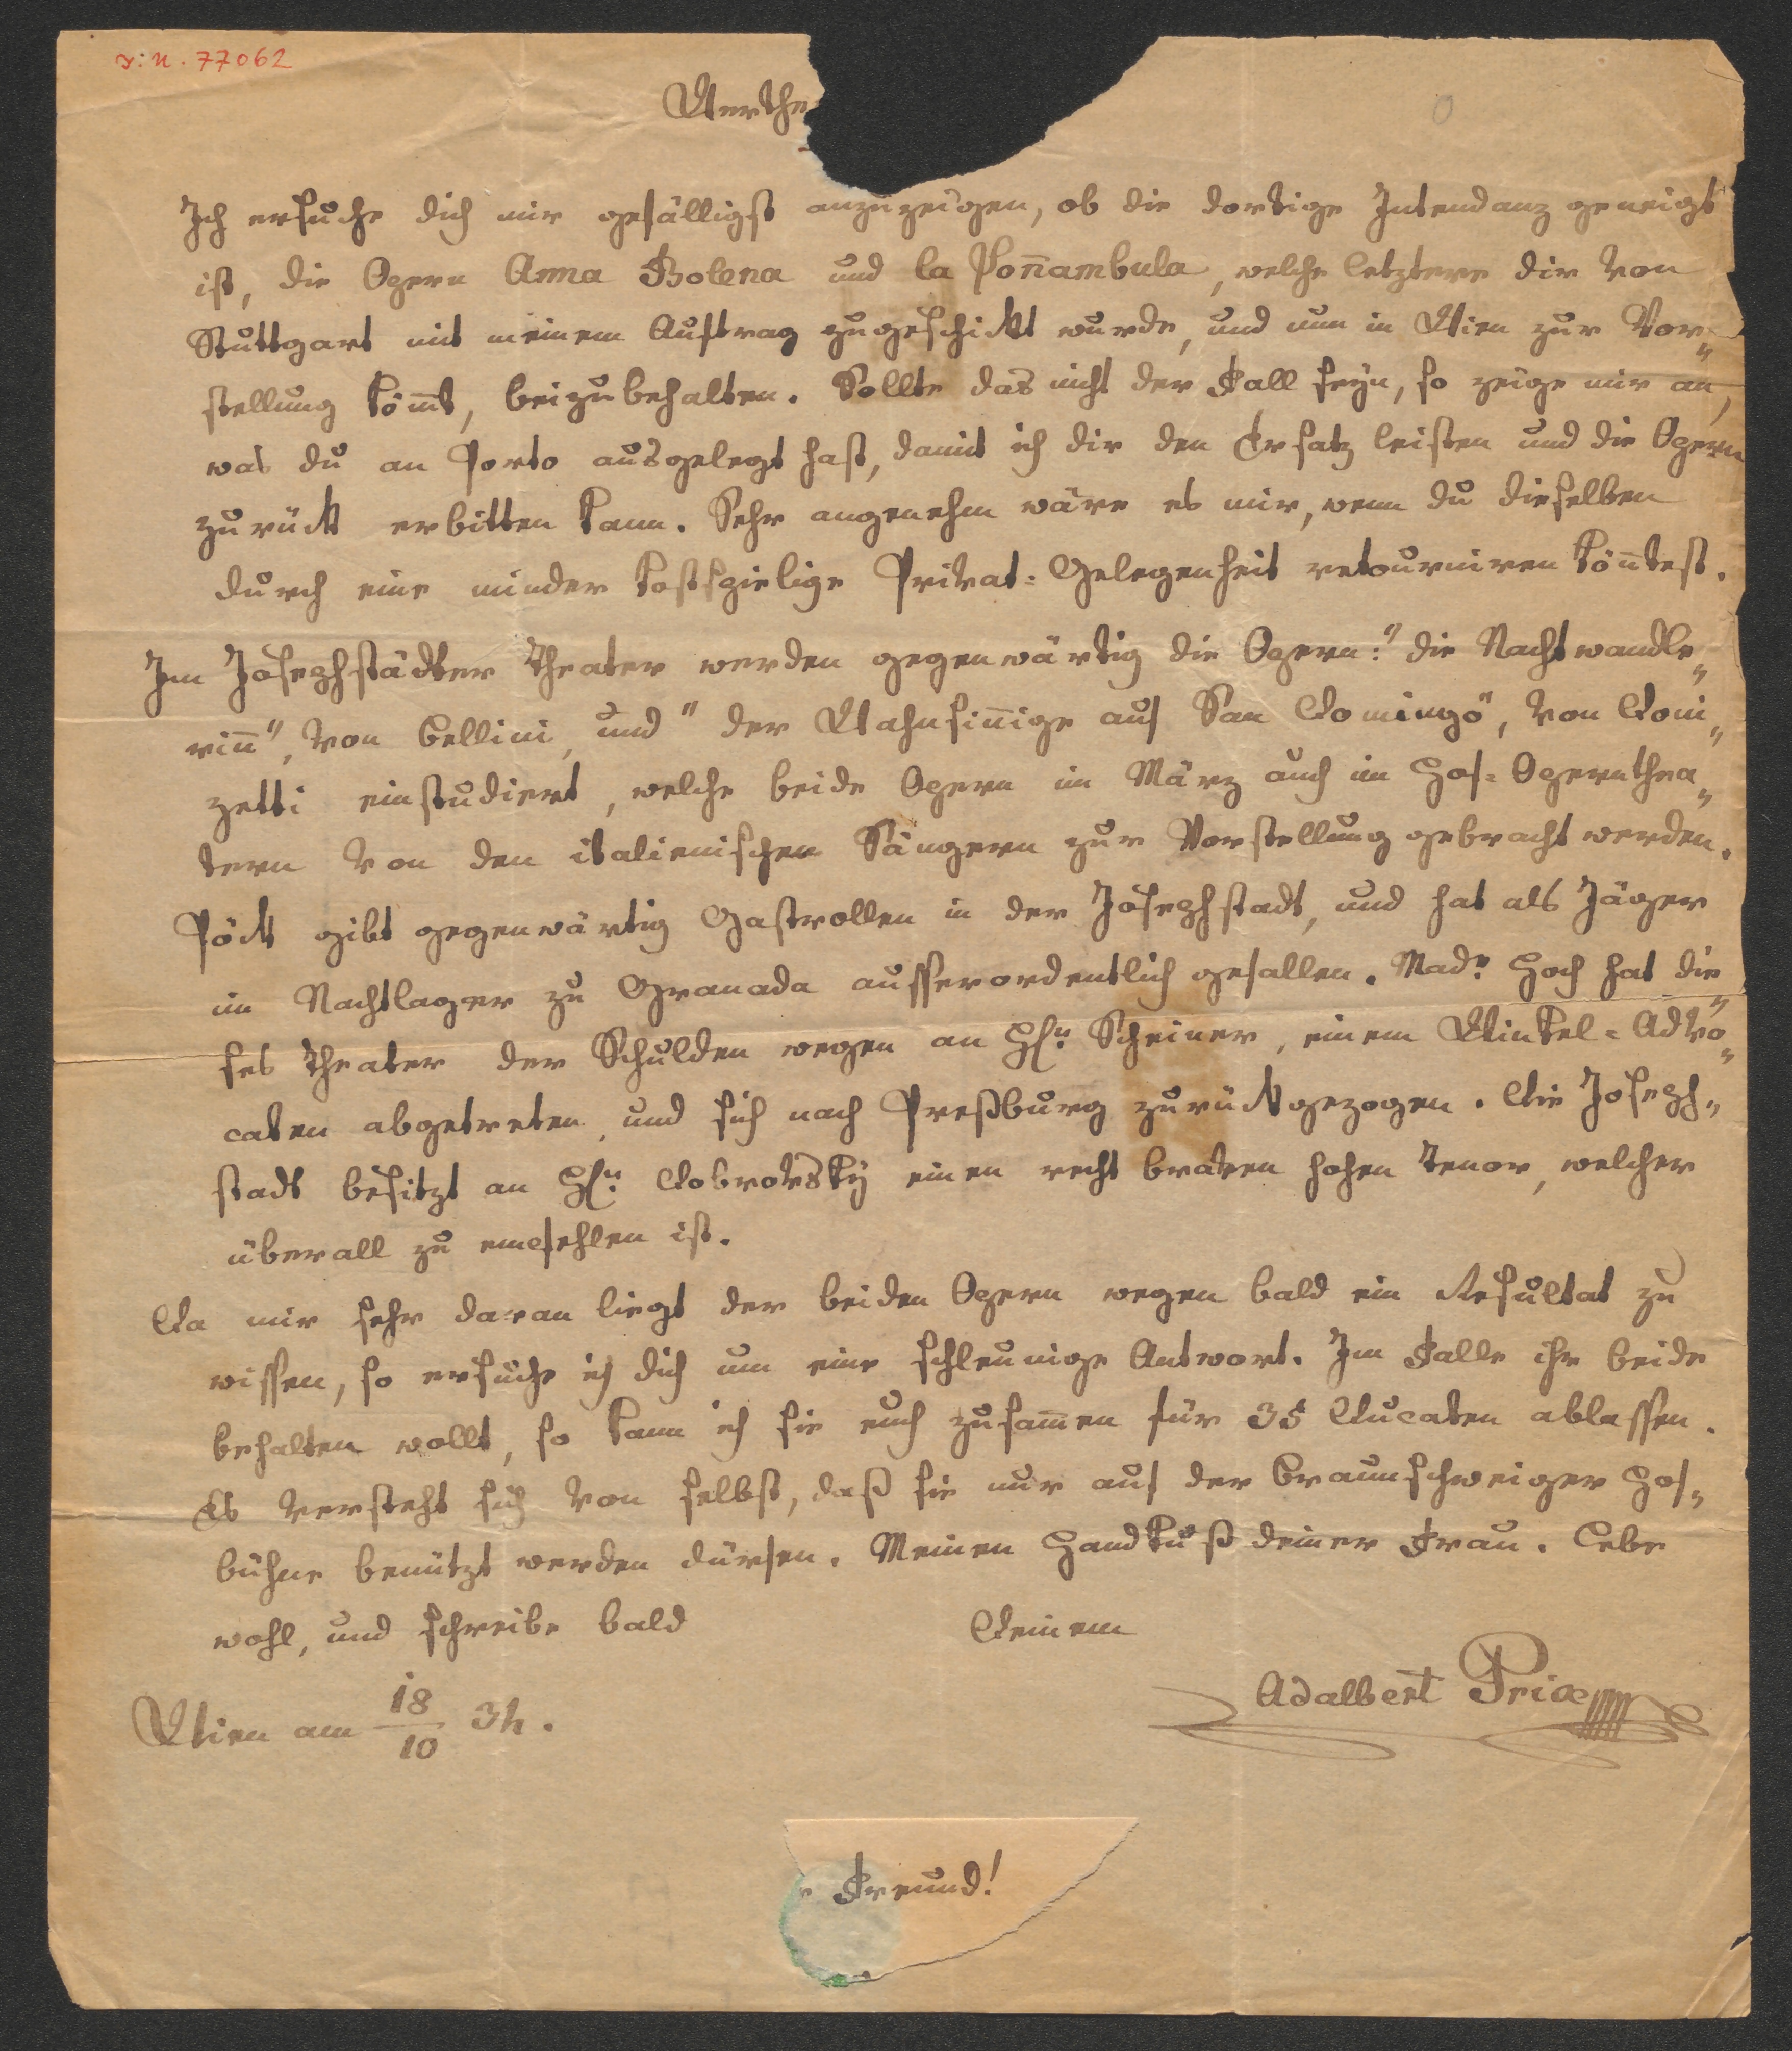 I: N. 77062
Werthe
Ich ersuche dich mir gefälligst anzuzeigen, ob die dortige Intendanz geneigt
ist, die Opern Anna Bolena und la Sonnambula, welche letztere dir von
Stuttgart mit meinem Auftrag zugeschickt wurde, und nun in Wien zur Vor„
stellung kom̄t, beizubehalten. Sollte das nicht der Fall seyn, so zeige mir an,
was du an Porto ausgelegt hast, damit ich dir den Ersatz leisten und die Opern
zurück erbitten kann. Sehr angenehm wäre es mir, wenn du dieselben
durch eine minder kostspielige Privat=Gelegenheit retourniren kön̄test.
Im Josephstädter Theater werden gegenwärtig die Opern: "die Nachtwandle„
rin̄", von Bellini, und "der Wahnsin̄ige auf San Domingo", von Doni„
zetti einstudiert, welche beide Opern im März auch im Hof=Opernthea„
tern von den italienischen Sängern zur Vorstellung gebracht werden.
Pöck gibt gegenwärtig Gastrollen in der Josephstadt, und hat als Jäger
im Nachtlager zu Granada ausserordentlich gefallen. Mad: Hoch hat die„
ses Theater der Schulden wegen an H: Scheiner, einem Winkel=Advo„
caten abgetreten, und sich nach Preßburg zurückgezogen. Die Joseph„
stadt besitzt an H: Dobrovsky einen recht braven hohen Tenor, welcher
überall zu empfehlen ist.
Da mir sehr daran liegt der beiden Opern wegen bald ein Resultat zu
wissen, so ersuche ich dich um eine schleunige Antwort. Im Falle ihr beide
behalten wollt, so kann ich sie euch zusam̄en für 35 Ducaten ablassen.
Es versteht sich von selbst, daß sie nur auf der Braunschweiger Hof„
bühne benützt werden dürfen. Meinen Handkuß deiner Frau. Lebe
wohl, und schreibe bald Deinem
Adalbert Prix
Wien am 18/10 34.
r Freund!